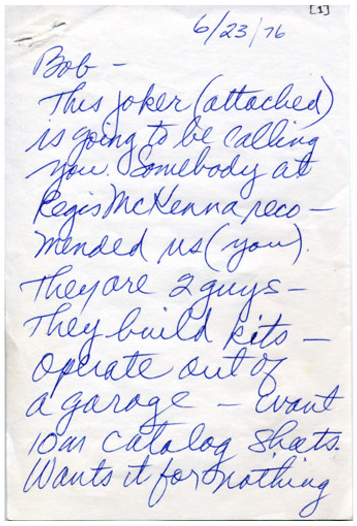 [1]
6/23/76
Bob –
This joker (attached)
is going to be calling
you. Somebody at
Regis McKenna reco –
mended us (you).
They are 2 guys –
They build kits –
operate out of
a garage – Want
low catalog sheets.
Wants it for nothing